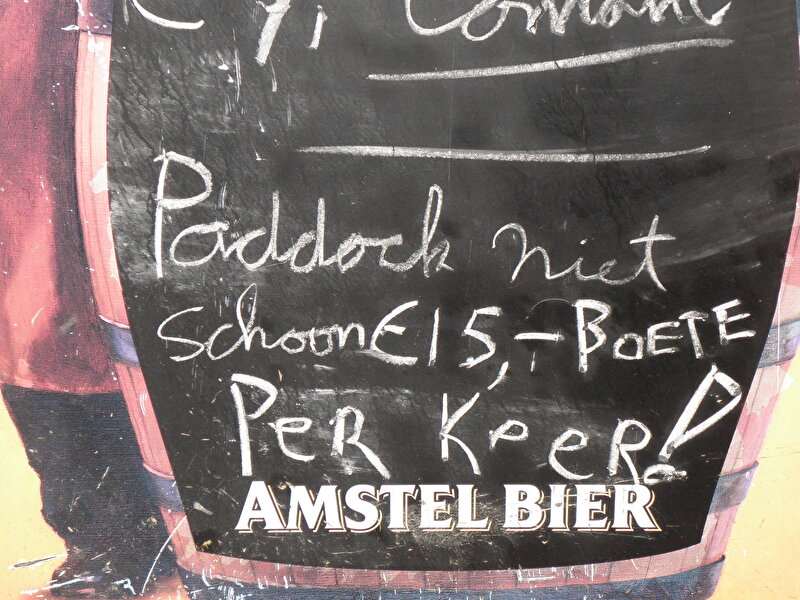 Paddock niet
schoon €15,- BOETE
PER KEER!
AMSTEL BIER